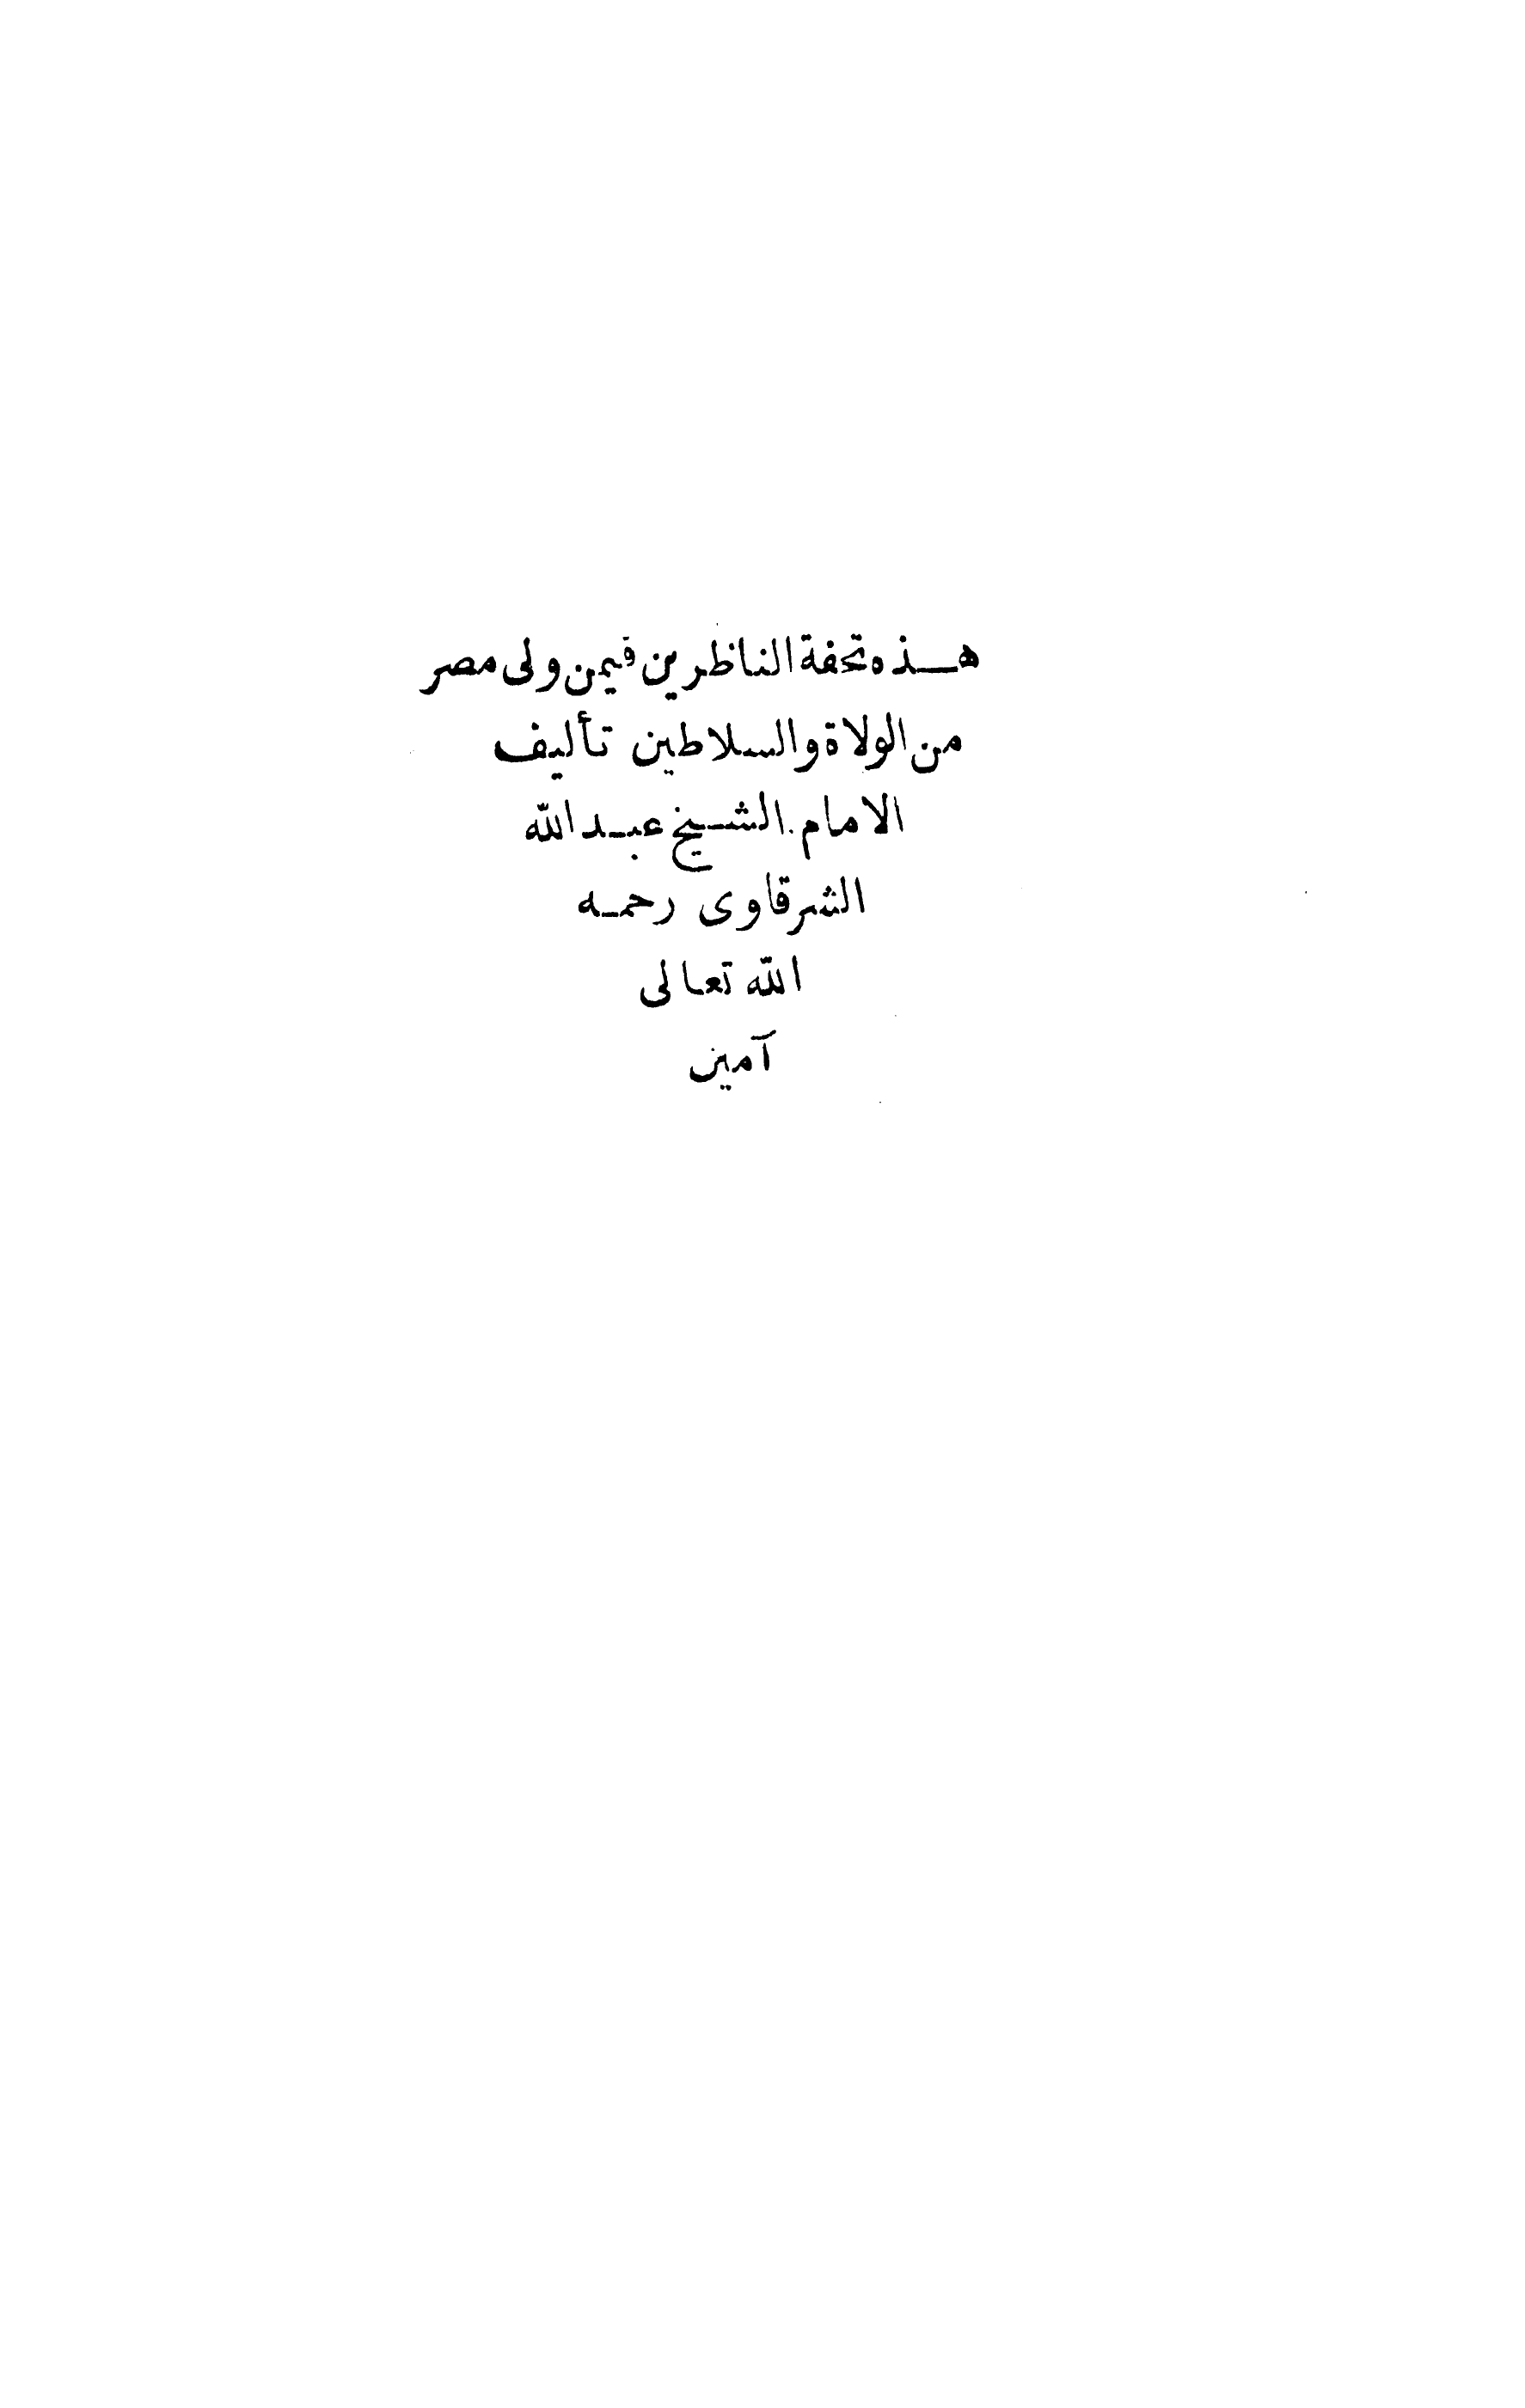 هذه تحفة الناظرين فيمن ولى مصر
من الولاة والسلاطين تأليف
الامام الشيخ عبد الله
الشرقاوى رحمه
الله تعالى
آمين